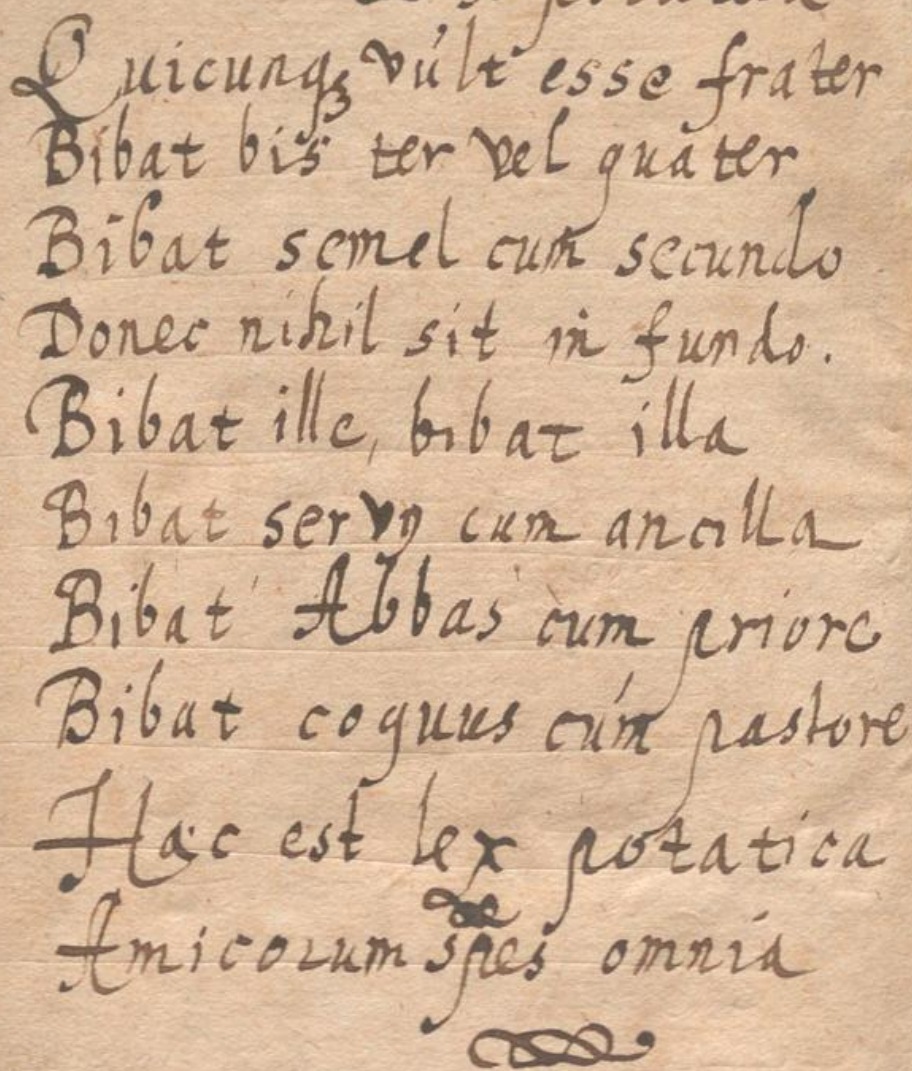 Quicunqꝫ vúlt esse frater
Bibat bis ter vel quater
Bibat semel cum secundo
Donec nihil sit in fundo.
Bibat ille, bibat illa
Bibat servꝯ cum ancilla
Bibat Abbas cum priore
Bibat coquus cúm pastore
Haec est lex potatica
Amicorum spes omnia